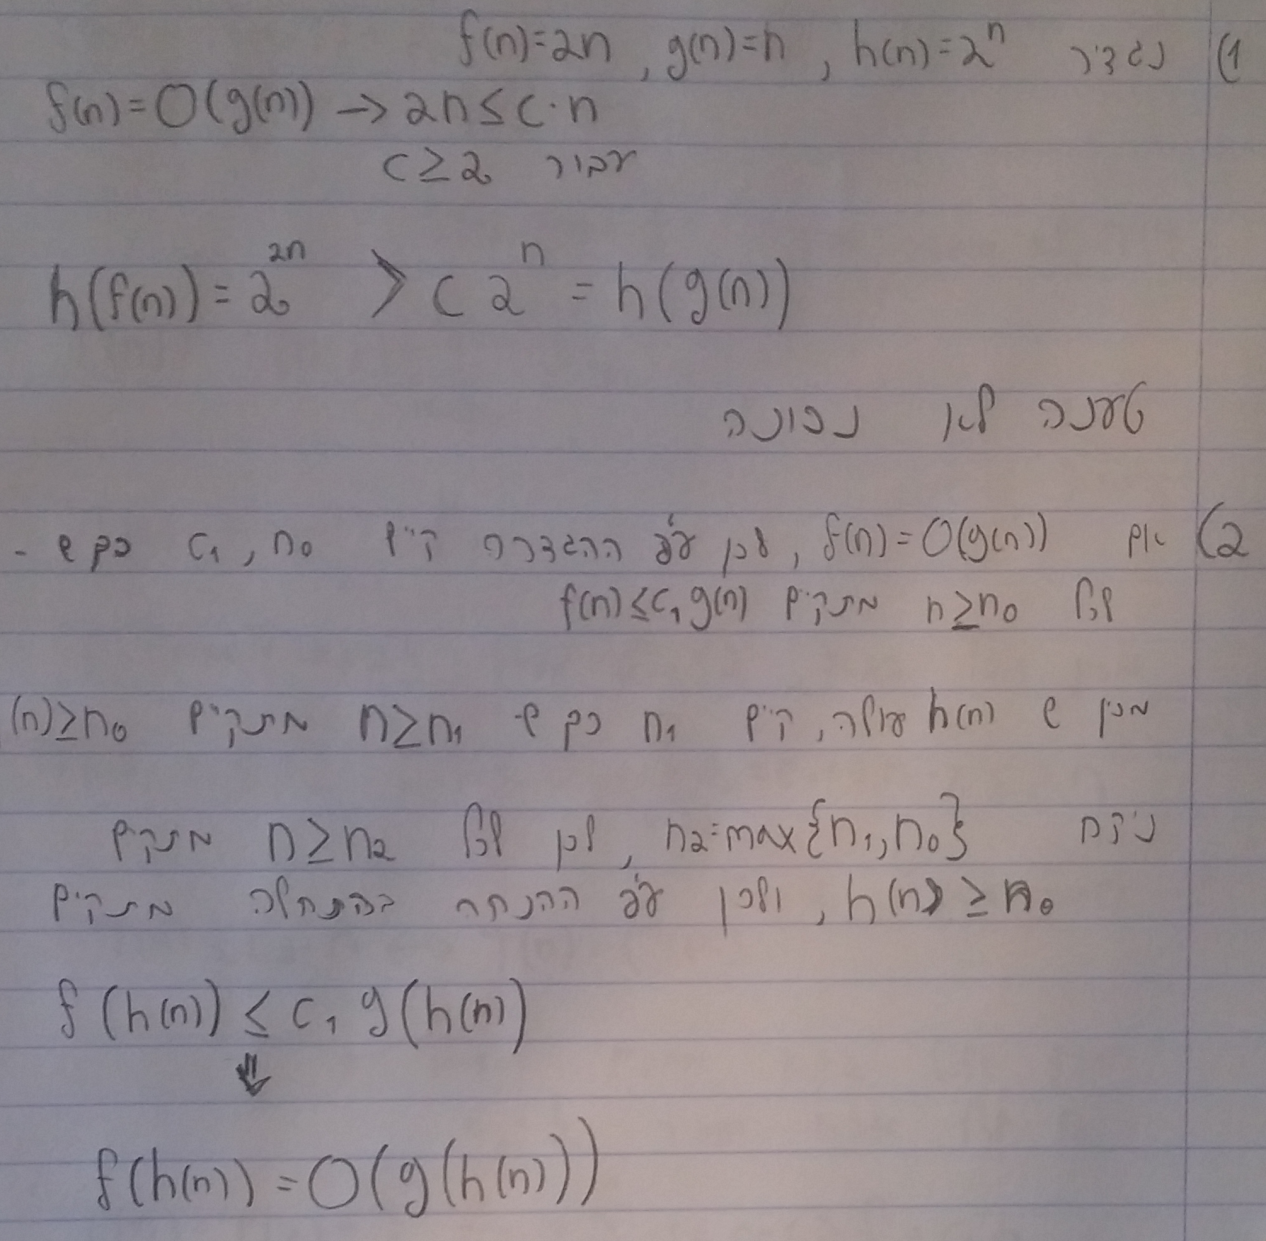 1) נגדיר f(n)=2n, g(n)=n, h(n)=2ⁿ
f(n)=O(g(n)) → 2n≤c·n
עבור c≥2
h(f(n))=2²ⁿ > c2ⁿ = h(g(n))
טענה לא נכונה
2) אם f(n)=O(g(n)), לכן עפ ההגדרה קיים c₁, n₀ כך ש -
לכל n≥n₀ מתקיים f(n)≤c₁g(n)
מכן ש h(n) עולה, קיים n₁ כך ש- n≥n₁ מתקיים (n)≥n₀
ניקח n₂=max{n₁,n₀}, לכן לכל n≥n₂ מתקיים
h(n) ≥n₀, ולכן עפ ההנחה בהתחלה מתקיים
f(h(n)) ≤ c₁ g(h(n)
⇓
f(h(n))=O(g(h(n)))